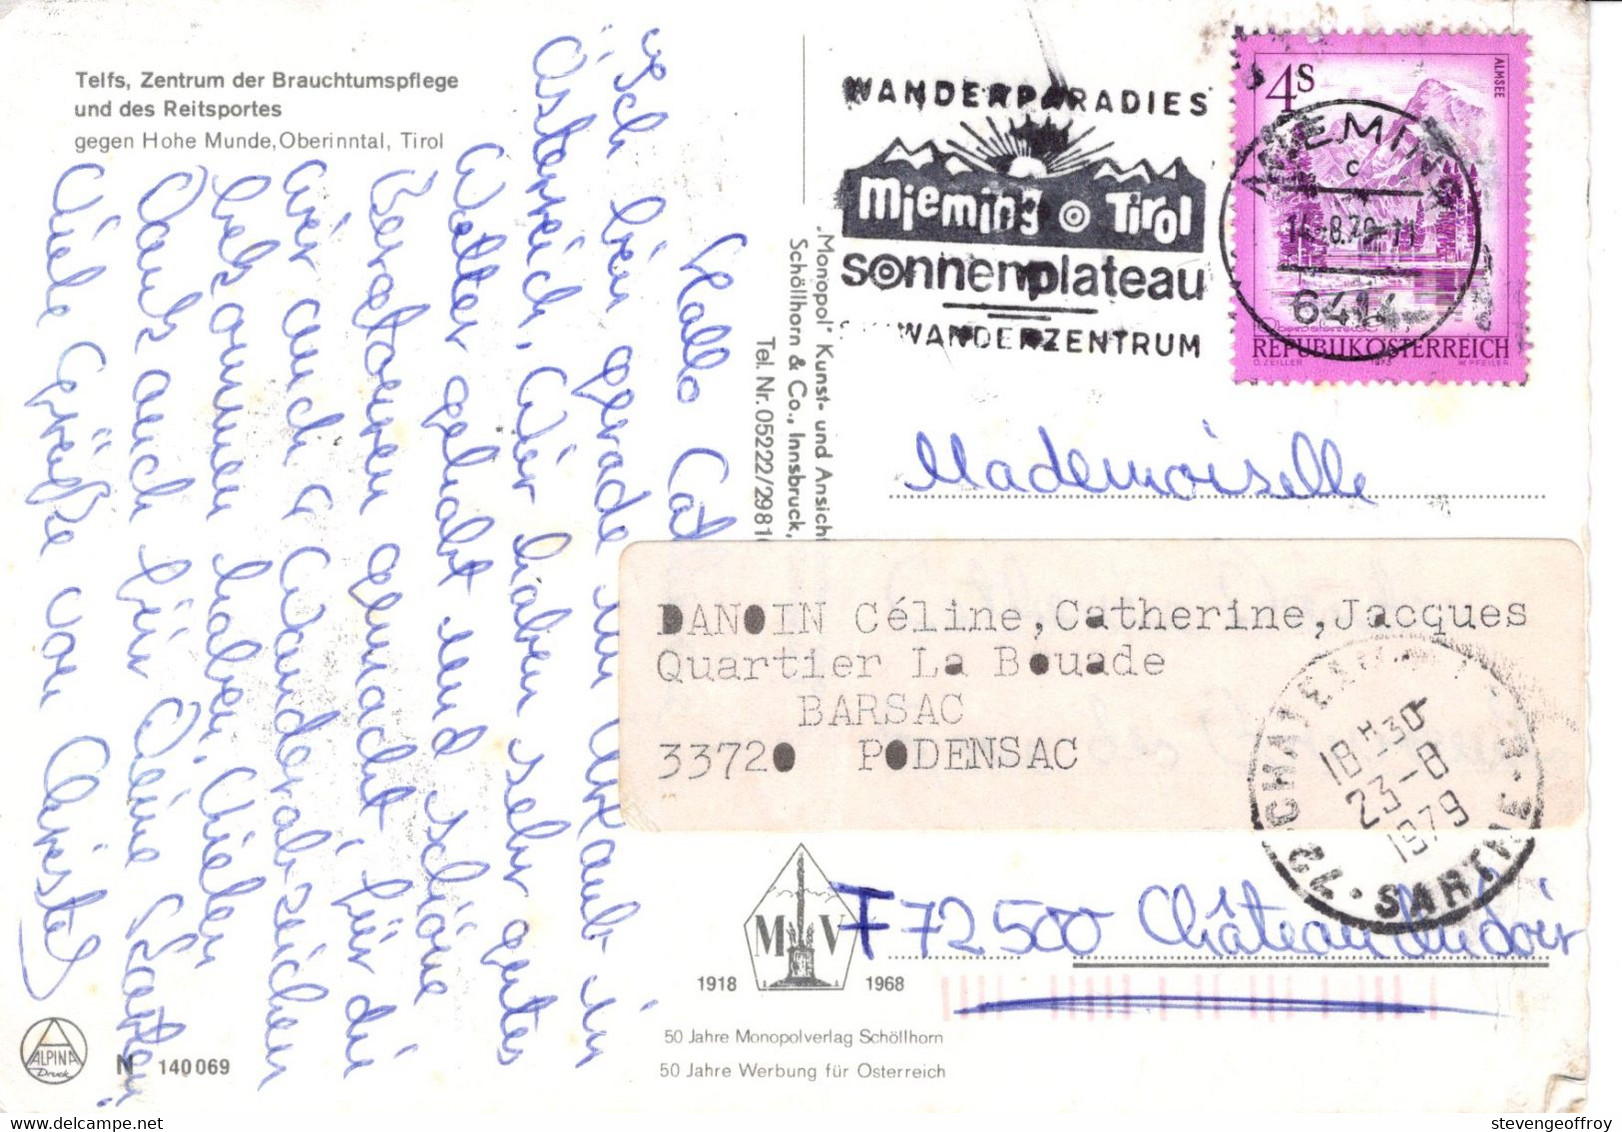 Telfs, Zentrum der Brauchtumspflege
und des Reitsportes
gegen Hohe Munde, Oberinntal, Tirol
Hallo
Ich bin gerade im Urlaub in
Österreich. Wir haben sehr gutes
Wetter gehabt und schöne
Bergtouren gemacht, für die
wir auch Wanderabzeichen
bekommen haben. Vielen
Dank auch für Deine Karte.
Viele Grüße von Christel
"Monopol" Kunst- und Ansicht
Schöllhorn & Co., Innsbruck,
Tel. Nr. 05222/2981
WANDERPARADIES
mieming Tirol
sonnenplateau
WANDERZENTRUM
4s
ALMSEE
MIEMING
c
6414
REPUBLIK ÖSTERREICH
O. ZEILER 1973 W. PFEILER
Mademoiselle
DANOIN Céline, Catherine, Jacques
Quartier La Bouade
BARSAC
33720 PODENSAC
18H30
23-8
1979
72 SARTHE
F 72500 Château du Loir
MV
1918 1968
50 Jahre Monopolverlag Schöllhorn
50 Jahre Werbung für Österreich
ALPINA
Druck
N 140069
stevengeoffroy